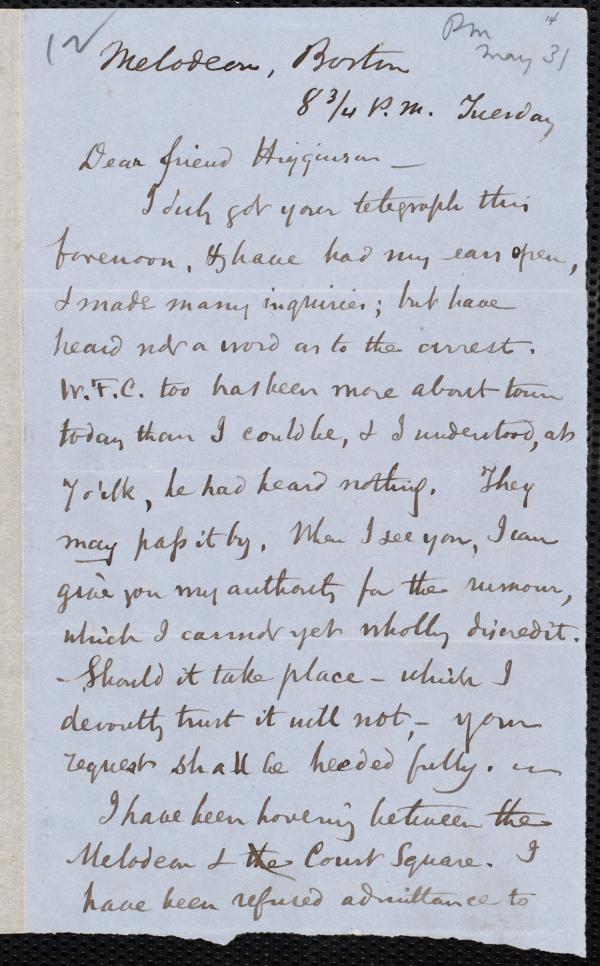 12
Pm
May 31
Melodeon, Boston
8 3/4 P.M. Tuesday
Dear friend Higginson —
I duly got your telegraph this
forenoon, & have had my ears open,
& made many inquiries; but have
heard not a word as to the arrest.
W.F.C. too has been more about town
today than I could be, & I understood, at
7 o'clk, he had heard nothing. They
may pass it by. When I see you, I can
give you my authority for the rumour,
which I cannot yet wholly discredit.
– Should it take place – which I
devoutly trust it will not, – your
request shall be heeded fully. —
I have been hovering between the
Melodeon & the Court Square. I
have been refused admittance to